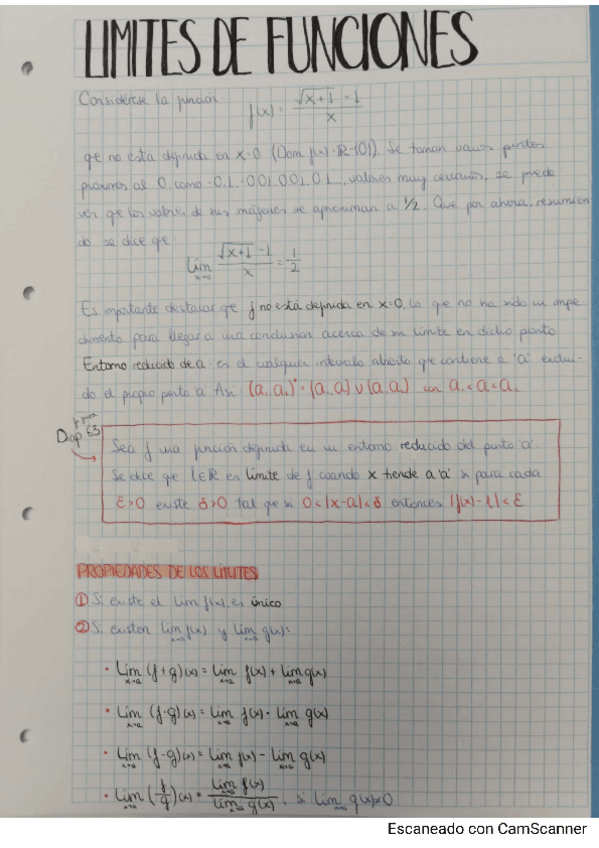 LIMITES DE FUNCIONES
Considérese la función f(x) = (√(x+1) - 1)/x
qe no está definida en x=0 (Dom f(x)=R-{0}). Se toman varios puntos
próximos al 0, como -0,1, -0,01, 0,01, 0,1..., valores muy cercanos, se puede
ver qe los valores de sus imágenes se aproximan a 1/2. Que por ahora, resumien
do se dice qe:
lim x→0 (√(x+1) - 1)/x = 1/2
Es importante destacar qe f no está definida en x=0, lo que no ha sido un impe
dimento para llegar a una conclusión acerca de su límite en dicho punto
Entorno reducido de a: es el cualquier intervalo abierto qe contiene a 'a' exclui-
do el propio punto 'a'. Así (a, a)* = (a, a) ∪ (a, a) con a < a < a
Diap 63
Sea f una función definida en un entorno reducido del punto 'a'.
Se dice qe l∈R es límite de f cuando x tiende a 'a' si para cada
ε>0 existe δ>0 tal qe si 0<|x-a|<δ entonces |f(x)-l|<ε
PROPIEDADES DE LOS LÍMITES
① Si existe el lim f(x), es único
② Si existen lim x→a f(x) y lim x→a g(x):
• Lim x→a (f+g)(x) = lim x→a f(x) + lim x→a g(x)
• Lim x→a (f·g)(x) = lim x→a f(x) · lim x→a g(x)
• Lim x→a (f-g)(x) = lim x→a f(x) - lim x→a g(x)
• Lim x→a (f/g)(x) = lim x→a f(x) / lim x→a g(x), si lim x→a g(x)≠0
Escaneado con CamScanner